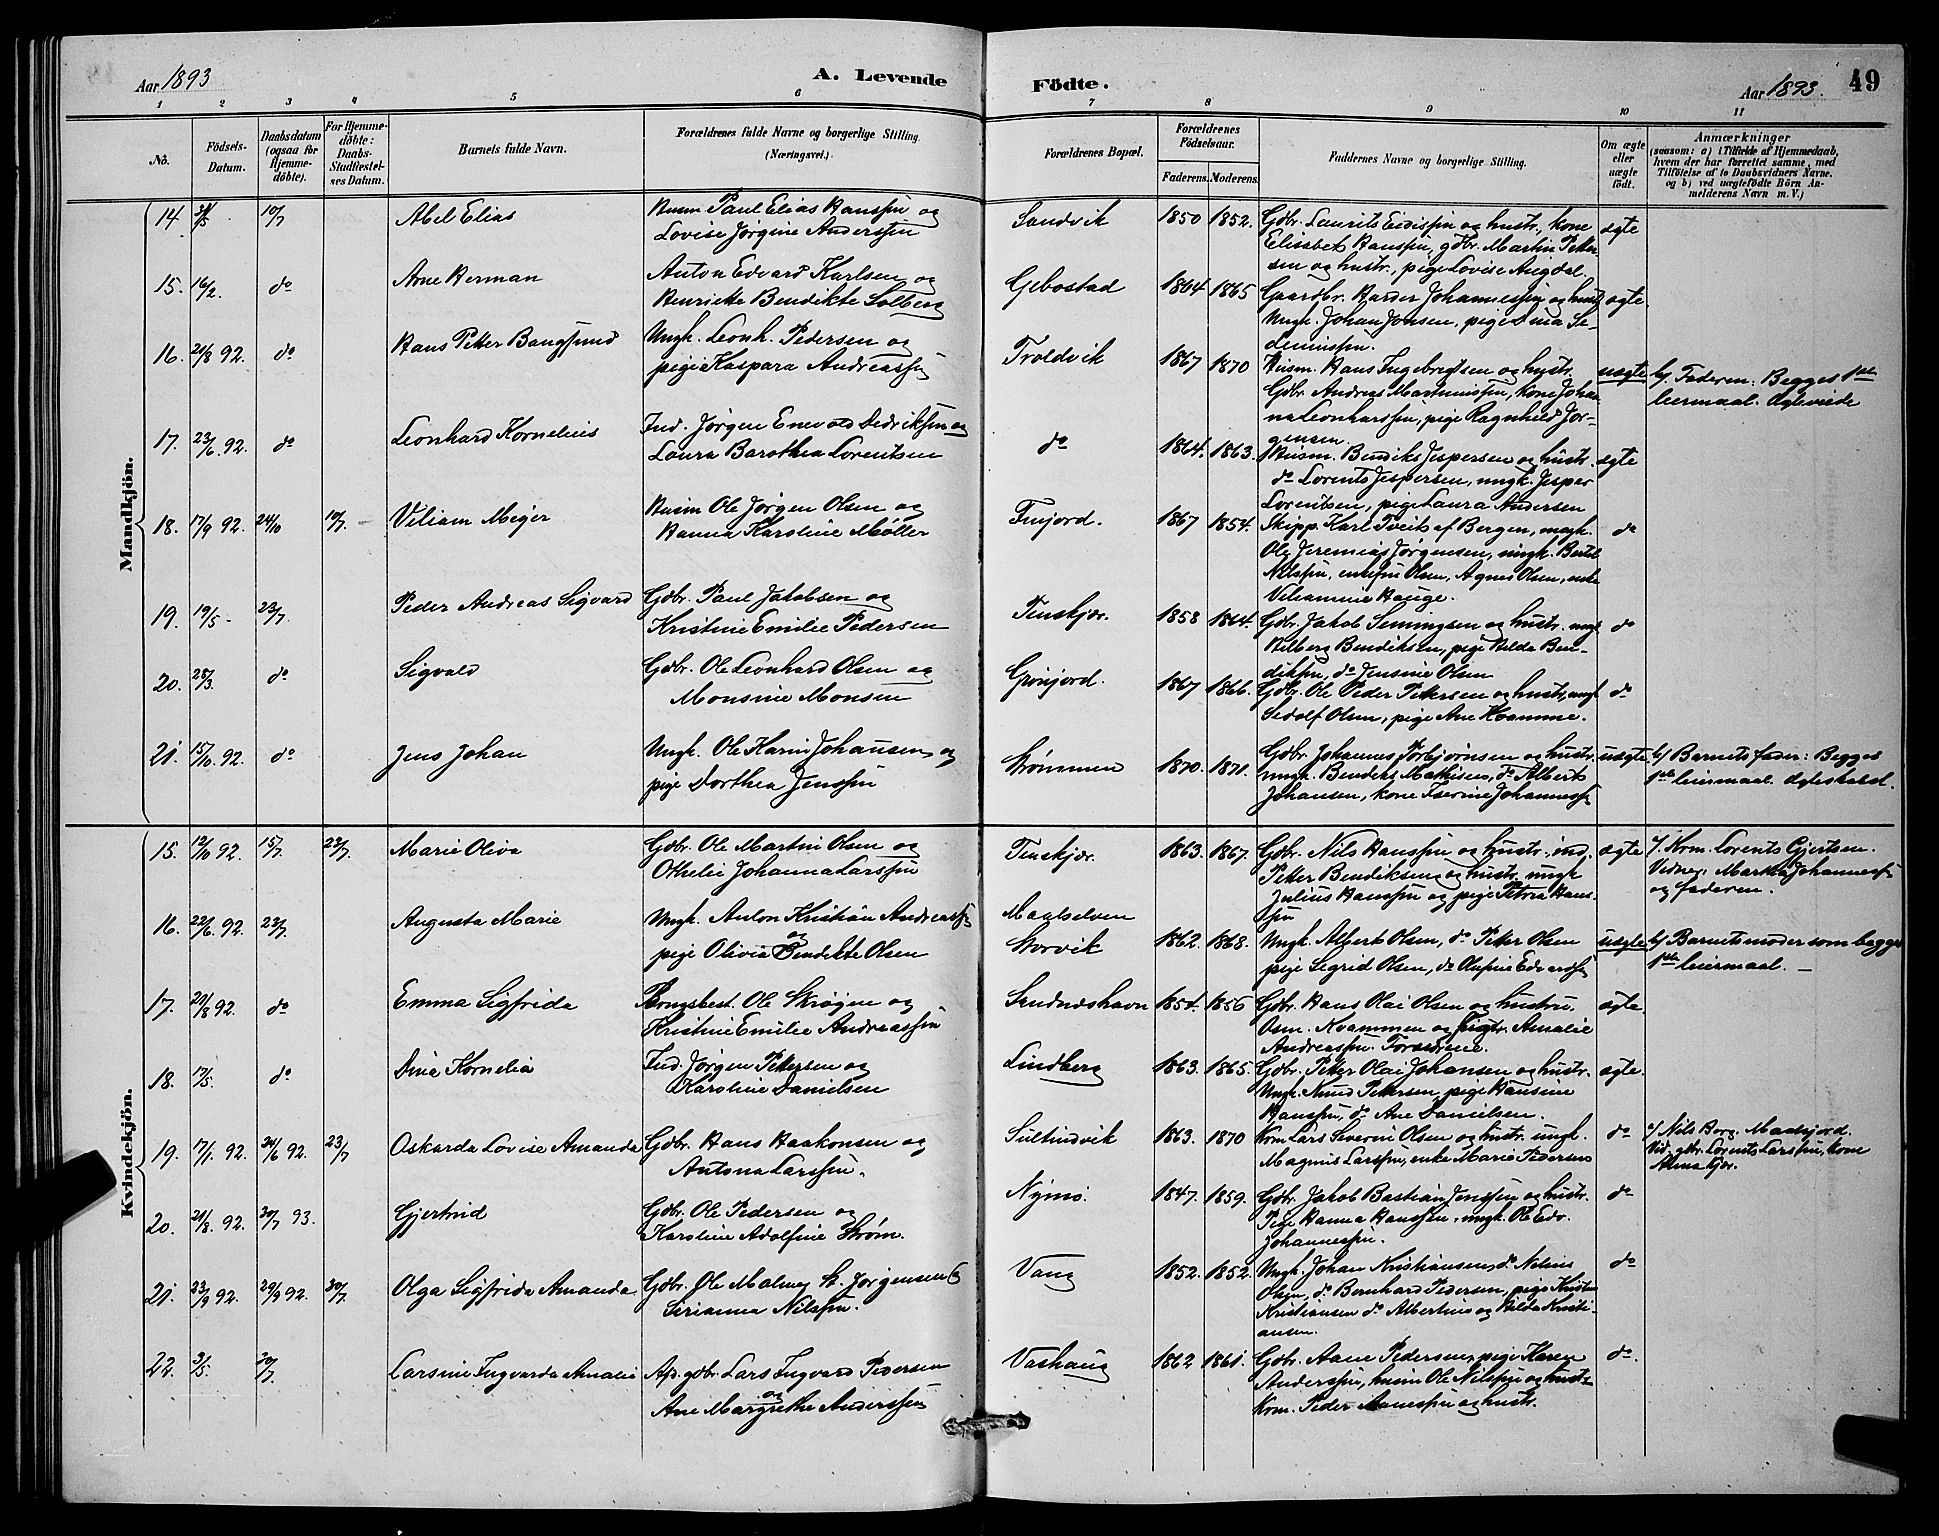 Aar 1893
A. Levende
Födte.
Aar 1893.
49
1 2 3 4 5 6 7 8 9 10 11
No.
Födsels-Datum.
Daabsdatum (ogsaa for Hjemme-döbte).
For Hjemme-döbte: Daabs-Stadfestel-ses Datum.
Barnets fulde Navn.
Forældrenes fulde Navne og borgerlige Stilling. (Næringsvei.)
Forældrenes Bopæl.
Forældrenes Födselsaar.
Faderens. Moderens.
Faddernes Navne og borgerlige Stilling.
Om ægte eller uægte födt.
Anmærkninger
(saasom: a) i Tilfælde af Hjemmedaab, hvem der har forrettet samme, med Tilföielse af to Daabsvidners Navne. og b) ved uægtefödte Börn An-melderens Navn m. V.)
Mandkjön.
14. 10/7 Abel Elias
Husm Paul Elias Hanssen og
Lovise Jørgine Anderssen
Sandvik 1850 1852.
Gdbr. Laurits Eidissen og hustr., kone
Elisabet Hanssen, gdbr. Martin Petter-
sen og hustr., pige Lovise Angdal.
ægte
15. 16/2. do Arne Herman
Anton Edvard Karlsen og
Henriette Bendikte Solberg
Gebostad 1864 1865
Gaardbr. Harder Johannessen og hustr
Ungk. Johan Jonsen, pige Dina Se-
ægte
16. 21/8 92. do Hans Petter Bangsund
Ungk. Leonh. Pedersen og
pige Kaspara Andreassen
Troldvik 1867 1870
Husm. Hans Ingebregtsen og hustr.
Gdbr. Andreas Martinussen, kone Johan
na Leonharssen, pige Ragnhild Jør-
gensen.
uægte
b/ Faderen: Begges 1ste
leiermaal.
17. 23/6. 92. do Leonhard Kornelius
Ind. Jørgen Enevold Dedriksen og
Laura Barothea Lorentsen
do 1864. 1863.
Husm. Bendiks Jespersen og hustr.
do Lorents Jespersen, ungk. Jesper
Lorentsen, pige Laura Andersen
ægte
18. 17/9 92. 24/10 10/7. Viliam Mejer
Husm Ole Jørgen Olsen og
Hanna Karoline Møller
Finjord. 1867 1854.
Skipp. Karl Tveits af Bergen, ungk.
Ole Jeremias Jørgensen, ungk. Bertel
Nilssen, enkefru Olsen, Agnes Olsen, enke
Vilhamine Hauge.
do
19. 19/5 - 23/7. Peder Andreas Sigvard
Gdbr. Paul Jakobsen og
Kristine Emilie Pedersen
Finskjær. 1858 1864.
Gdbr. Jakob Simingsen og hustr. ungk
Hilberg Bendiksen, pige Hilda Ben-
diksen, do Jensine Olsen
do
20. 25/3. do Sigvald
Gdbr. Ole Leonhard Olsen og
Monsine Monsen
Grønjord. 1867 1866.
Gdbr. Ole Peder Pettersen og hustr, ungk
Sedolf Olsen, pige Ane Kvamme.
do
21. 15/10. 92. do Jens Johan
Ungk. Ole Karin Johansen og
pige Dorthea Jenssen
Strømmen 1870. 1871.
Gdbr. Johannes Torbjørnsen og hustr
ungk. Bendiks Mathisen, do Alberts
Johansen, kone Iserine Johannessen
uægte
b/ Barnets fader: Begges
1ste leiermaal. Ægteskabsl.
Kvindekjön.
15. 12/10 92. 15/7. 22/7. Marie Oliva
Gdbr. Ole Martin Olsen og
Othelie Johanna Larssen
Finskjær. 1863. 1867.
Gdbr. Nils Hanssen og hustr. ind.
Petter Bendiksen og hustr. ungk
Julius Hanssen og pige Petra Hans-
sen
ægte
a/. Krm. Lorents Gjertsen.
Vidner: Martha Johannessen
og faderen.
16. 22/6. 92. 23/7. Augusta Marie
Ungk. Anton Kristian Andreassen
og
pige Olivia Bendikte Olsen
Maalselven
Storvik 1862. 1868.
Ungk. Albert Olsen, do Petter Olsen
pige Sigrid Olsen, do Olufine Edvardsen
uægte
b/ Barnets moder som begges
1ste leiermaal. —
17. 29/8 92. do Emma Sigfrida
Brugsbest. Ole Skrøgen og
Kristine Emilie Andreassen
Sandneshavn 1854. 1856
Gdbr. Hans Olai Olsen og hustru.
Osm. Kvammen og hustr. Amalie
Andreassen. Forældrene.
ægte.
18. 17/5. do Dina Kornelia
Ind. Jørgen Pettersen og
Karoline Danielsen
Lindberg 1863. 1865.
Gdbr. Petter Olai Johansen og hustr.
Ungk. Knud Pettersen, pige Hansine
Hanssen, do Ane Danielsen.
ægte.
19. 17/1. 92. 24/6 92. 23/7 Oskarda Lovise Amanda
Gdbr. Hans Haakonsen og
Antona Larssen.
Sultindvik 1863. 1870
Krm Lars Severin Olsen og hustr. ungk.
Magnus Larssen, enke Marie Pedersen
do
a/ Nils Borg. Maasjord.
Vid. gbr. Lorents Larssen, kone
20. 21/8. 92. 30/7 93. Gjertrud
Gdbr. Ole Pedersen og
Karoline Adolfine Strøm.
Nymo. 1847. 1859.
Gdbr. Jakob Bastian Jenssen og hustr.
Pige Hanna Hanssen, ungk. Ole Edv.
Johannessen.
do
21. 23/9 92. 29/9 92. 30/7. Olga Sigfrida Amanda
Gdbr. Ole Malmey St. Jørgensen og
Serianna Nilssen.
Vang 1852. 1852.
Ungk. Johan Kristiansen, do Nelius
Olsen, do Bernhard Pedersen, pige Kristine
Kristiansen do Albertine og Hilda Kristi-
ansen.
do
22. 3/5. 30/7. Larsine Ingvarda Amalie
Afs. gdbr. Lars Ingvard Pedersen
og
Ane Margrethe Anderssen
Vashaug 1862 1861.
Gdbr. Aane Pedersen, pige Karen
Anderssen, husm Ole Nilssen og hustr.
Krm. Peder Aanessen og hustr.
do.